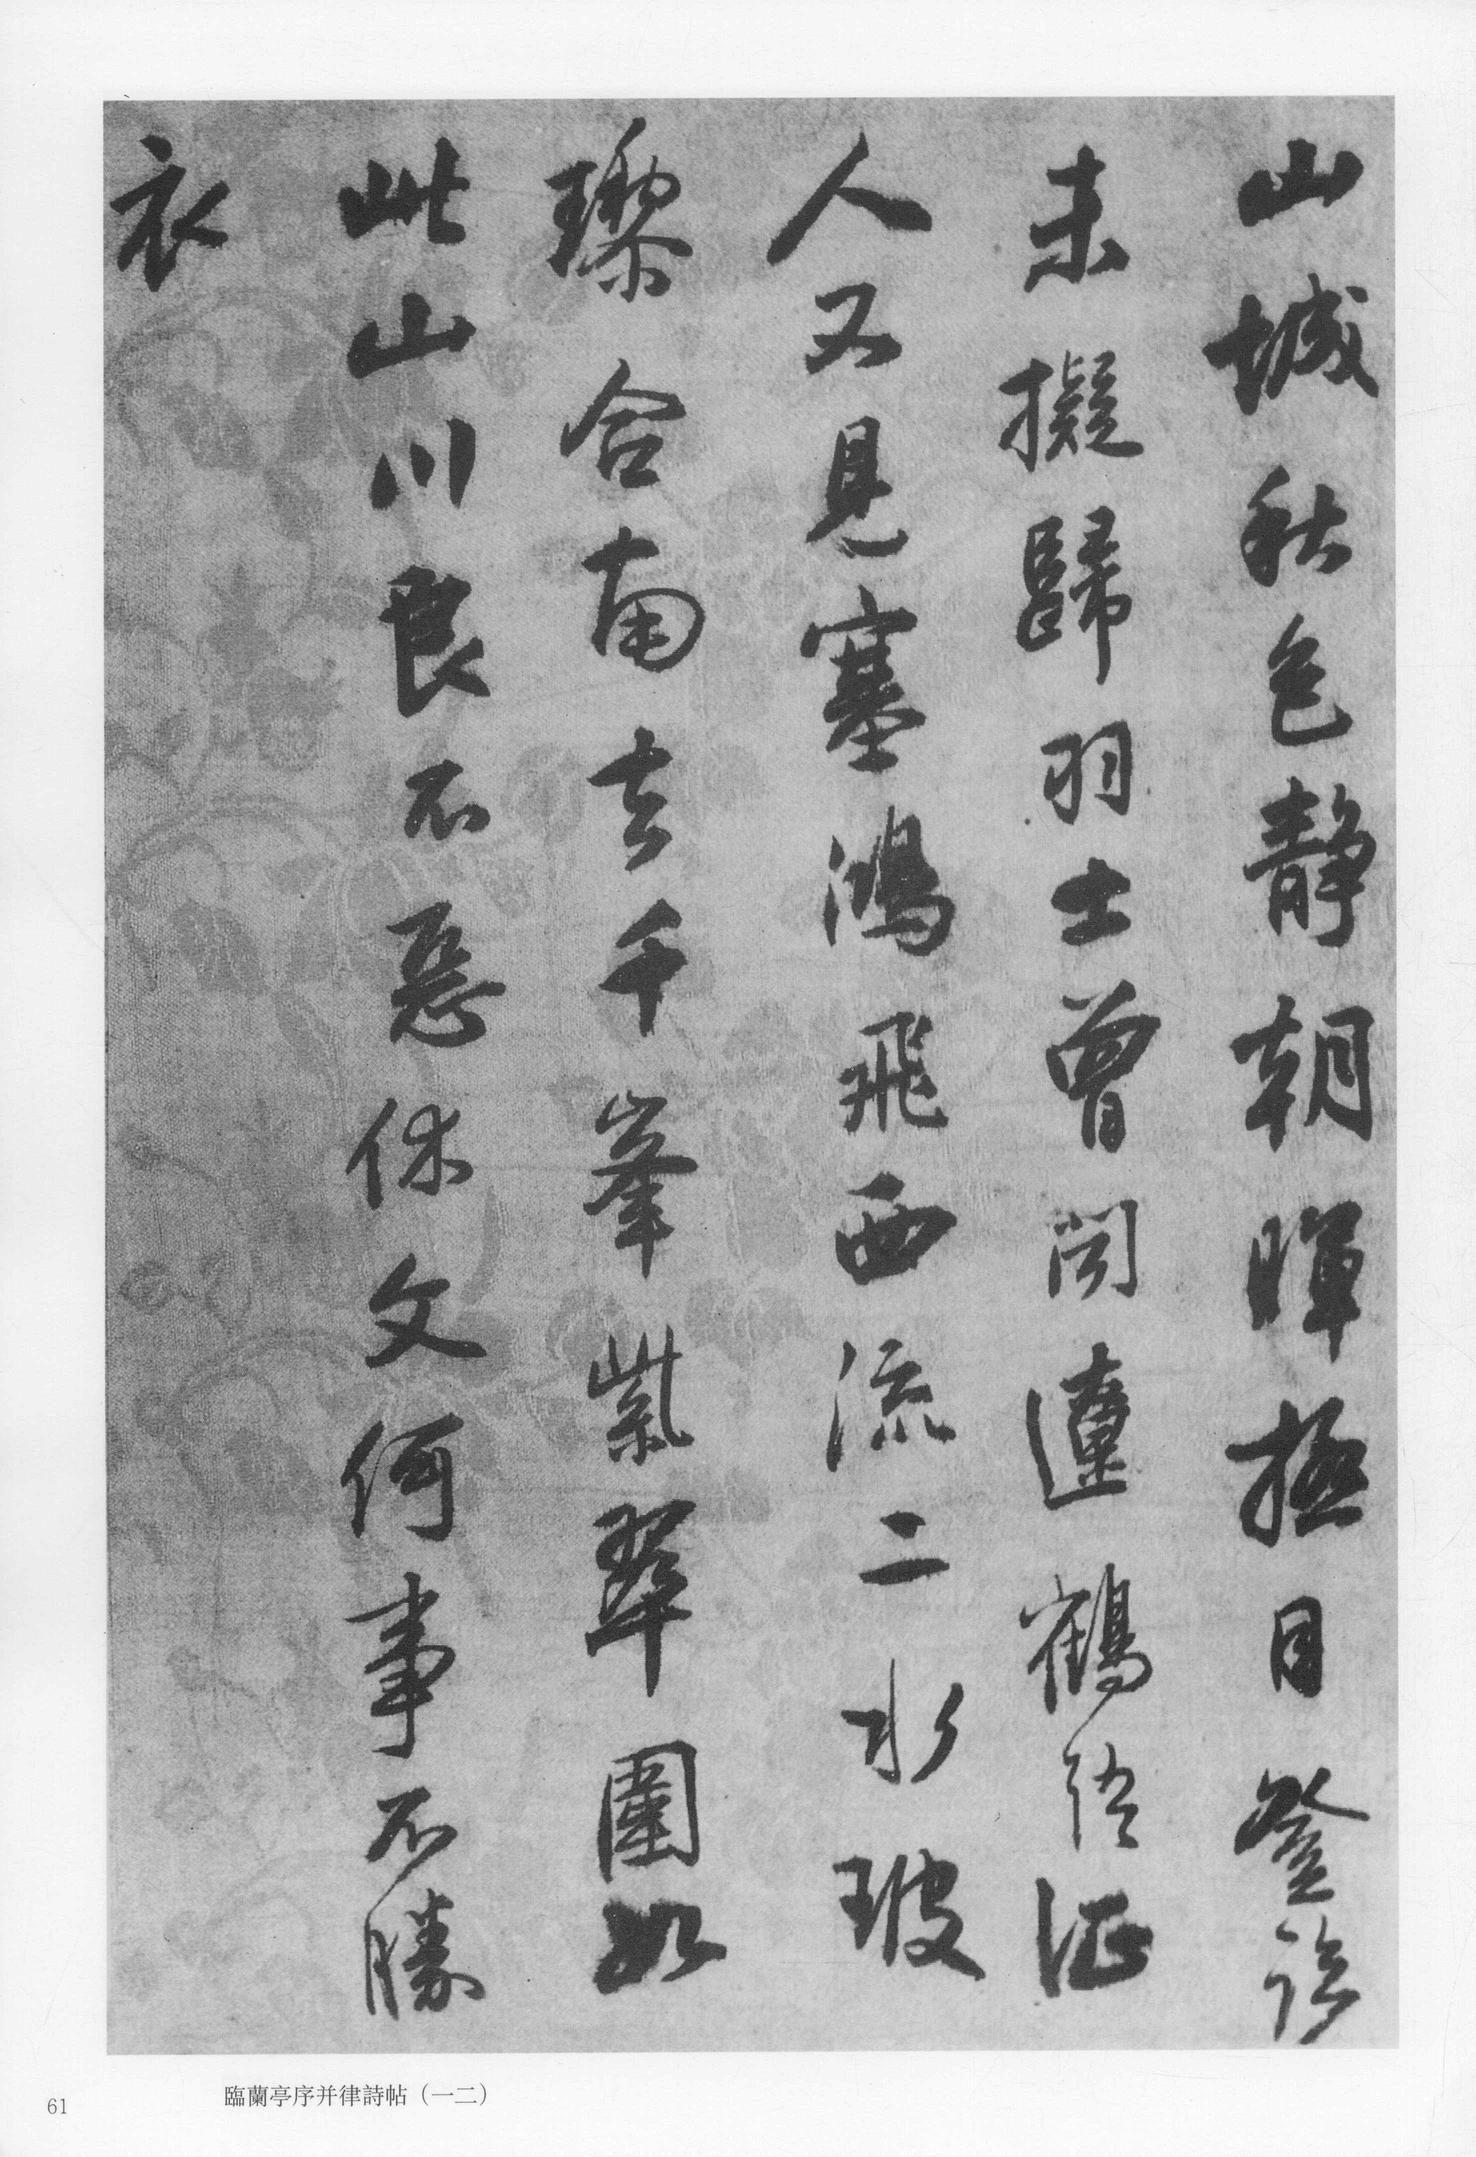 山城秋色靜朝暉極目登臨
未擬歸羽士曾聞遼鶴語征
人又見塞鴻飛西流二水玻
瓈合南去千峯紫翠圍如
此山川良不惡休文何事不勝
衣
61
臨蘭亭序并律詩帖（一二）